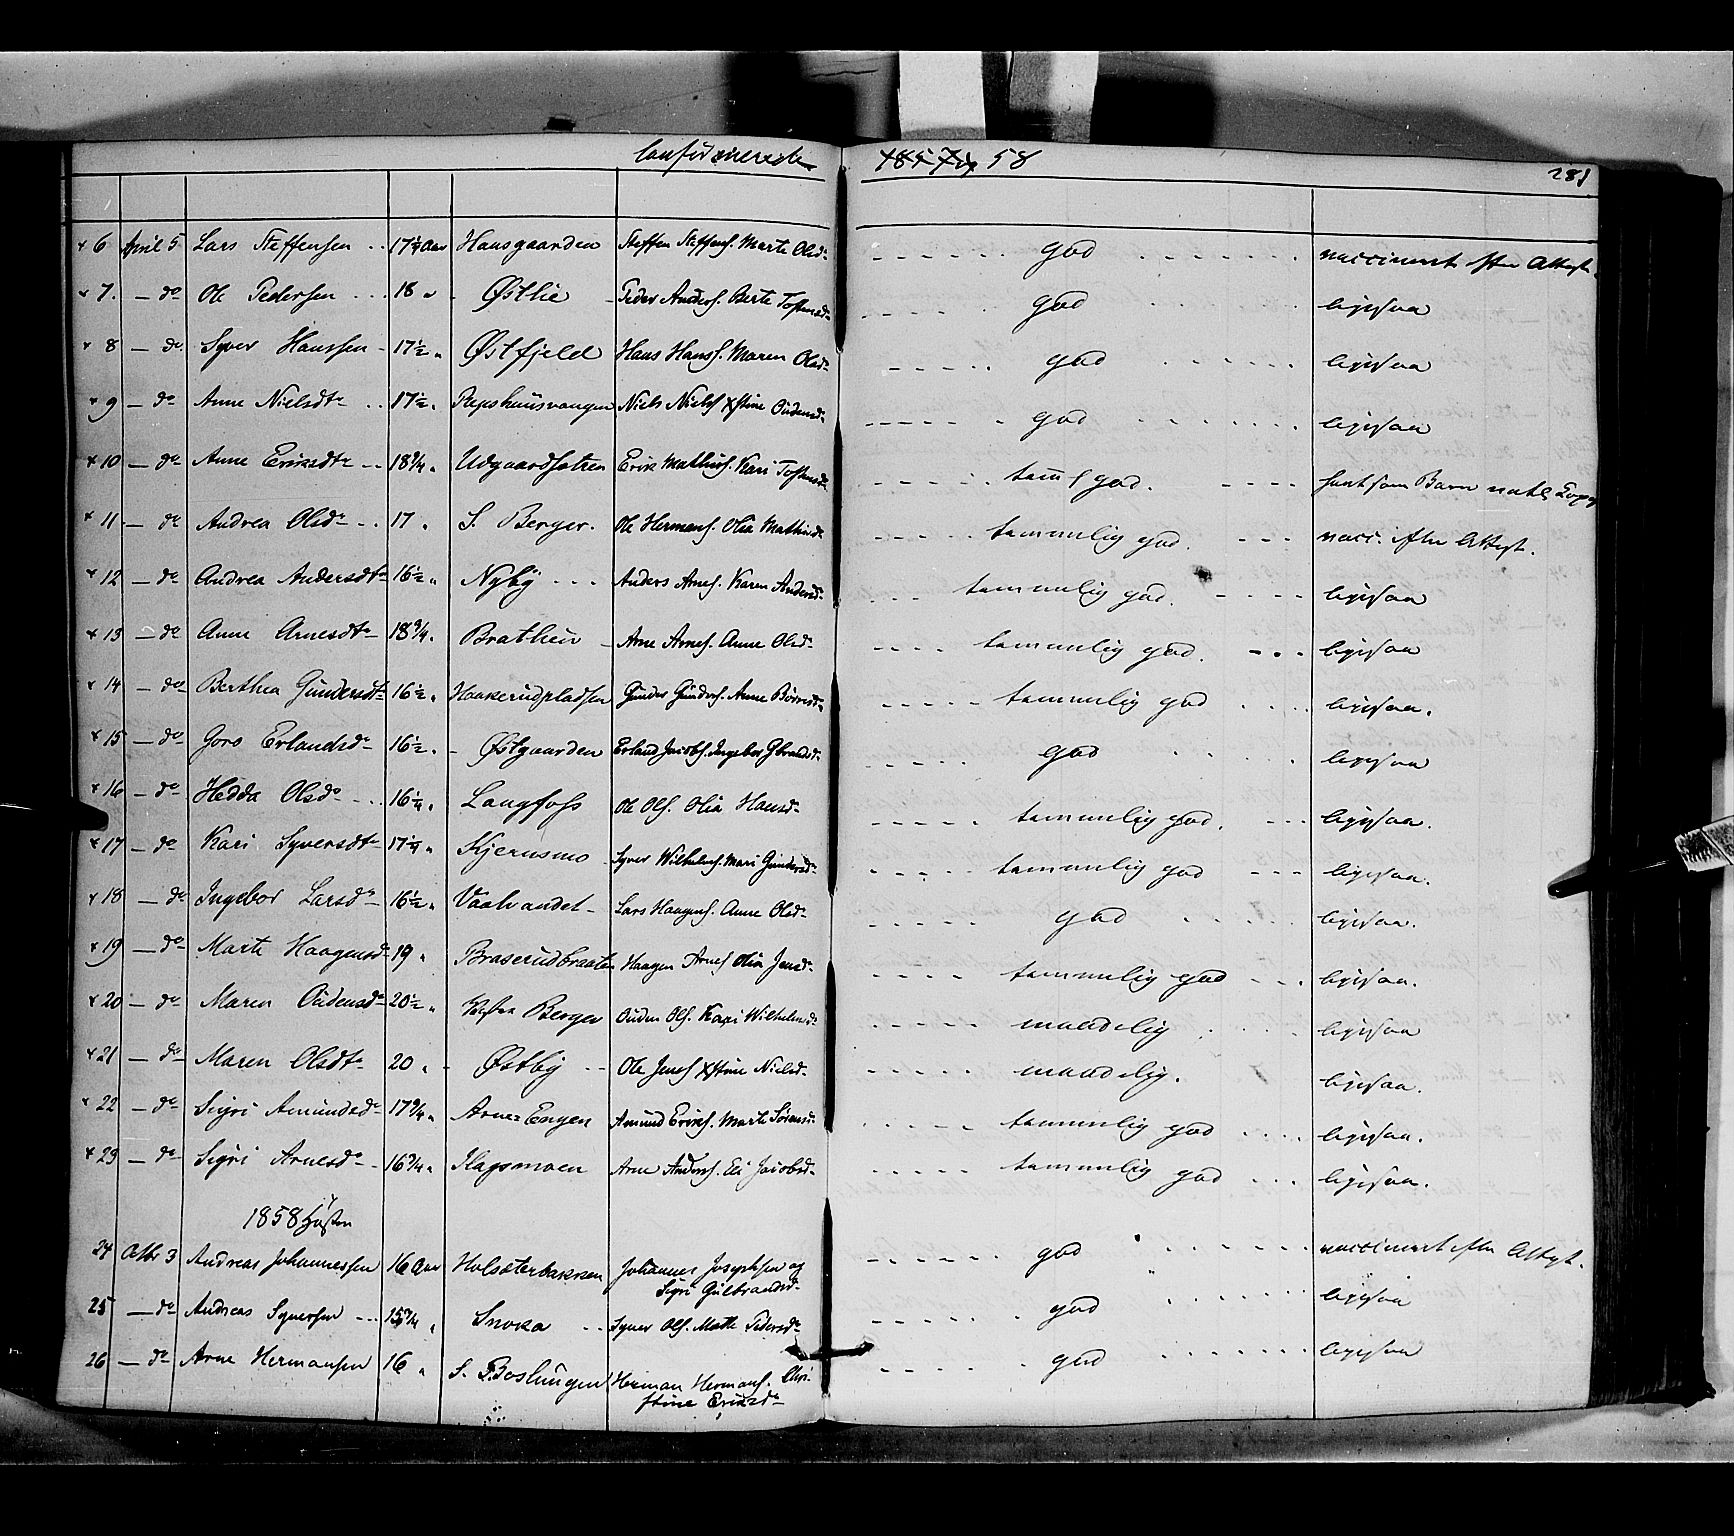 Confirmerede 1857 og 58 281
6 April 5 Lars Steffensen 17 1/4 Aar Haugaarden Steffen Steffens. Marte Olsd. god vaccineret efter Attest.
7. — do Ole Pedersen 18 " Østlie Peder Anders. Berte Tostensd. god ligesaa
8 — do Syver Hanssen 17 1/2 " Østfjeld Hans Hanss. Maren Olsd. god ligesaa
9 — do Anne Nielsdtr 17 1/2 " Niels Niels. Xstine Oudensd. god ligesaa
10 — do Anne Eriksdtr 18 3/4 " Udgaardsætren Erik Mathias. Kari Tostensd. teml god. havt som Barn natl Kopp
11 — do Andrea Olsdr 17 " S. Berger. Ole Hermans. Olia Mathisd. temmelig god. vacc. efter Attest.
12 — do Andrea Andersdtr 16 1/2 " Nyby Anders Arnes. Karen Andersd. temmelig god. ligesaa
13 — do Anne Arnesdtr 18 3/4 " Brathen Arne Arnes. Anne Olsd. temmelig god. ligesaa
14 — do Berthea Gundersdtr 16 1/2 " Haakerudpladsen Gunder Gunders. Anne temmelig god ligesaa.
15 — do Goro Erlandsdr 16 1/2 " Østgaarden Erland Jacobs. Ingebor Gbrandsd. god ligesaa
16 — do Hedda Olsdr 16 1/4 " Langfoss Ole Ols. Olia Hansd. temmelig god. ligesaa.
17 — do Kari Syversdtr 17 1/4 " Kjernsmo Syver Wilhelms. Mari Gundersd. temmelig god ligesaa.
18 — do Ingebor Larsdr 16 1/2 " Vaalvandet Lars Haagens. Anne Olsd. god ligesaa.
19 — do Marte Haagensdr 19 " Braserudbraaten Haagen Arnes. Olia Jensd. temmelig god ligesaa.
20 — do Maren Oudensdr 20 1/2 " Vestre Berger Ouden Ols. Kari Wilhelmsd. maadelig ligesaa
21 — do Maren Olsdtr 20 " Østby Ole Jens. Xstine Nielsd. maadelig. ligesaa.
22 — do Sigri Amundsdr 17 3/4 " Arne-Engen Amund Eriks. Marte Sørensd. temmelig god ligesaa.
23 — do Sigri Arnesdr 16 3/4 " Arne Anders. Eli Jacobsd. temmelig god ligesaa.
1858 Høsten
24 Octbr 3 Andreas Johannessen 16 Aar Holsæterbakken Johannes Josephsen og god vaccineret efter Attest.
Sigri Gulbrandsd.
25 — do Andreas Syversen 15 3/4 " Snoka Syver Ols. Marte Pedersd. god ligesaa
26 — do Arne Hermansen 16 " S. Boslungen Herman Hermans. Chri- god ligesaa
stine Eriksd.